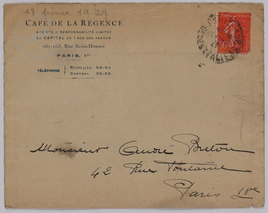 18 février 1927
CAFÉ DE LA RÉGENCE
SOCIÉTÉ À RESPONSABILITÉ LIMITÉE
AU CAPITAL DE
161-163, Rue Saint-Honoré
PARIS, 1er
TÉLÉPHONE
CENTRAL
Monsieur André Breton
42 Rue Fontaine
Paris